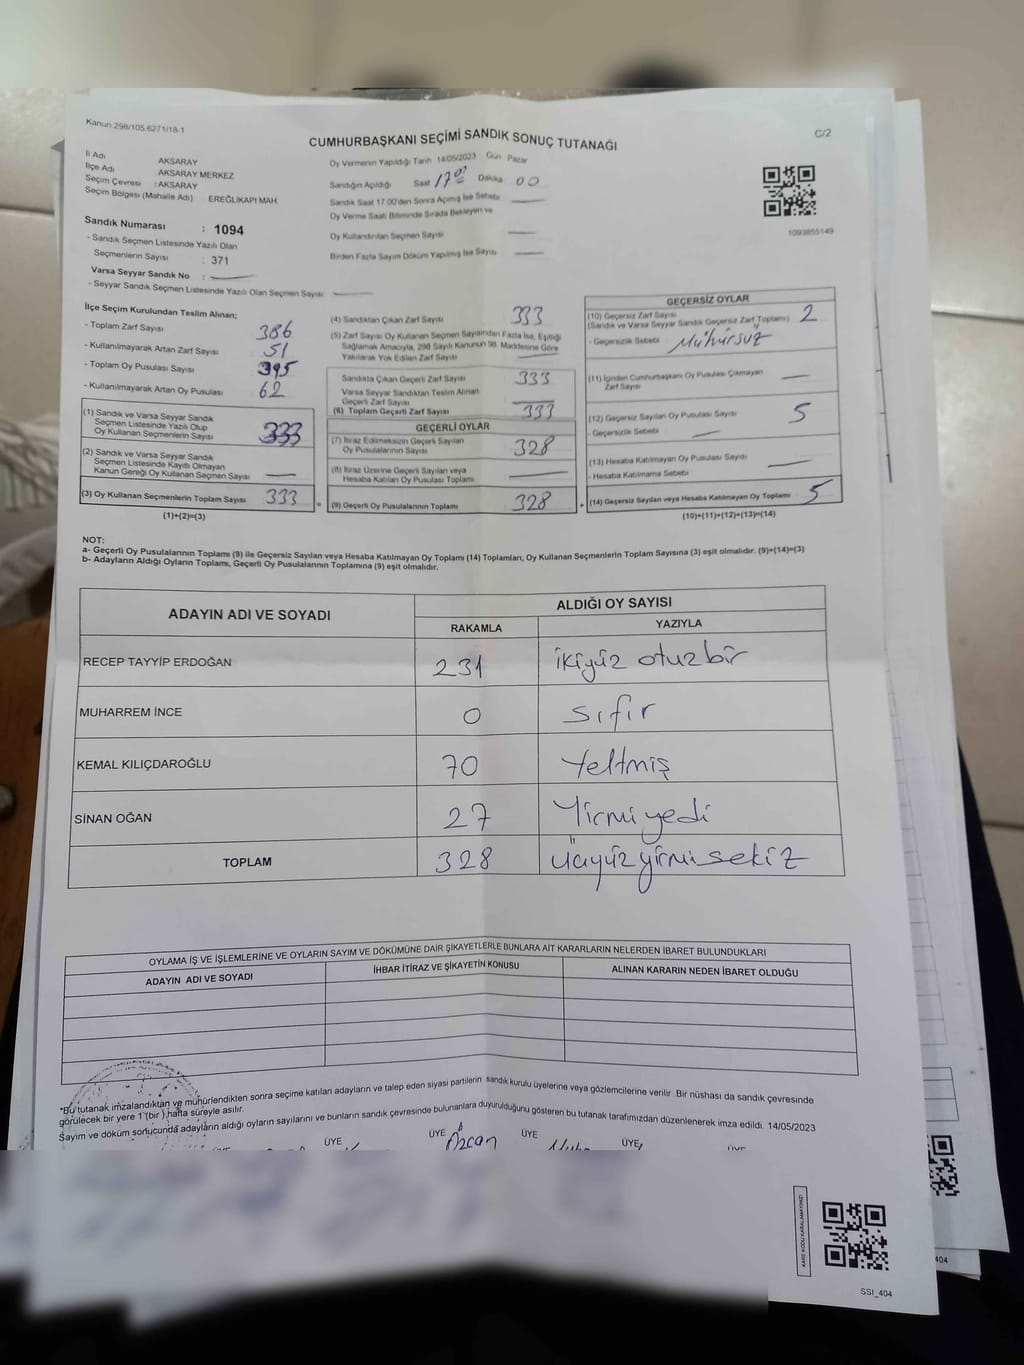 Kanun.298/105.6271/18-1
C/2
CUMHURBAŞKANI SEÇİMİ SANDIK SONUÇ TUTANAĞI
İl Adı AKSARAY
İlçe Adı AKSARAY MERKEZ
Seçim Çevresi : AKSARAY
Seçim Bölgesi (Mahalle Adı) EREĞLİKAPI MAH.
Oy Vermenin Yapıldığı Tarih 14/05/2023 Gün Pazar
Sandığın Açıldığı Saat 17 00 Dakika 00
Sandık Saat 17.00'den Sonra Açılmış İse Sebebi
Oy Verme Saati Bitiminde Sırada Bekleyen ve
Oy Kullandırılan Seçmen Sayısı
Birden Fazla Sayım Döküm Yapılmış İse Sayısı
1093855149
Sandık Numarası : 1094
- Sandık Seçmen Listesinde Yazılı Olan
Seçmenlerin Sayısı : 371
Varsa Seyyar Sandık No :
- Seyyar Sandık Seçmen Listesinde Yazılı Olan Seçmen Sayısı:
İlçe Seçim Kurulundan Teslim Alınan;
- Toplam Zarf Sayısı 386
- Kullanılmayarak Artan Zarf Sayısı 51
- Toplam Oy Pusulası Sayısı 395
- Kullanılmayarak Artan Oy Pusulası 62
(1) Sandık ve Varsa Seyyar Sandık
Seçmen Listesinde Yazılı Olup
Oy Kullanan Seçmenlerin Sayısı 333
(2) Sandık ve Varsa Seyyar Sandık
Seçmen Listesinde Kayıtlı Olmayan
Kanun Gereği Oy Kullanan Seçmen Sayısı
(3) Oy Kullanan Seçmenlerin Toplam Sayısı 333
=
(1)+(2)=(3)
(4) Sandıktan Çıkan Zarf Sayısı 333
(5) Zarf Sayısı Oy Kullanan Seçmen Sayısından Fazla İse, Eşitliği
Sağlamak Amacıyla, 298 Sayılı Kanunun 98. Maddesine Göre
Yakılarak Yok Edilen Zarf Sayısı
Sandıkta Çıkan Geçerli Zarf Sayısı 333
Varsa Seyyar Sandıktan Teslim Alınan
Geçerli Zarf Sayısı
(6) Toplam Geçerli Zarf Sayısı 333
GEÇERLİ OYLAR
(7) İtiraz Edilmeksizin Geçerli Sayılan
Oy Pusulalarının Sayısı 328
(8) İtiraz Üzerine Geçerli Sayılan veya
Hesaba Katılan Oy Pusulası Toplamı
(9) Geçerli Oy Pusulalarının Toplamı 328
+
GEÇERSİZ OYLAR
(10) Geçersiz Zarf Sayısı
(Sandık ve Varsa Seyyar Sandık Geçersiz Zarf Toplamı) 2
- Geçersizlik Sebebi Mühürsüz
(11) İçinden Cumhurbaşkanı Oy Pusulası Çıkmayan
Zarf Sayısı
(12) Geçersiz Sayılan Oy Pusulası Sayısı 5
- Geçersizlik Sebebi
(13) Hesaba Katılmayan Oy Pusulası Sayısı
- Hesaba Katılmama Sebebi
(14) Geçersiz Sayılan veya Hesaba Katılmayan Oy Toplamı 5
(10)+(11)+(12)+(13)=(14)
NOT:
a- Geçerli Oy Pusulalarının Toplamı (9) ile Geçersiz Sayılan veya Hesaba Katılmayan Oy Toplamı (14) Toplamları, Oy Kullanan Seçmenlerin Toplam Sayısına (3) eşit olmalıdır. (9)+(14)=(3)
b- Adayların Aldığı Oyların Toplamı, Geçerli Oy Pusulalarının Toplamına (9) eşit olmalıdır.
ADAYIN ADI VE SOYADI
ALDIĞI OY SAYISI
RAKAMLA YAZIYLA
RECEP TAYYİP ERDOĞAN 231 ikiyüz otuzbir
MUHARREM İNCE 0 sıfır
KEMAL KILIÇDAROĞLU 70 Yeltmiş
SİNAN OĞAN 27 Yirmi yedi
TOPLAM 328 üçyüz yirmi sekiz
OYLAMA İŞ VE İŞLEMLERİNE VE OYLARIN SAYIM VE DÖKÜMÜNE DAİR ŞİKAYETLERLE BUNLARA AİT KARARLARIN NELERDEN İBARET BULUNDUKLARI
ADAYIN ADI VE SOYADI İHBAR İTİRAZ VE ŞİKAYETİN KONUSU ALINAN KARARIN NEDEN İBARET OLDUĞU
*Bu tutanak imzalandıktan ve mühürlendikten sonra seçime katılan adayların ve talep eden siyasi partilerin sandık kurulu üyelerine veya gözlemcilerine verilir. Bir nüshası da sandık çevresinde
görülecek bir yere 1 (bir) hafta süreyle asılır.
Sayım ve döküm sonucunda adayların aldığı oyların sayılarını ve bunların sandık çevresinde bulunanlara duyurulduğunu gösteren bu tutanak tarafımızdan düzenlenerek imza edildi. 14/05/2023
ÜYE ÜYE ÜYE ÜYE
Özcan
SSI_404
404